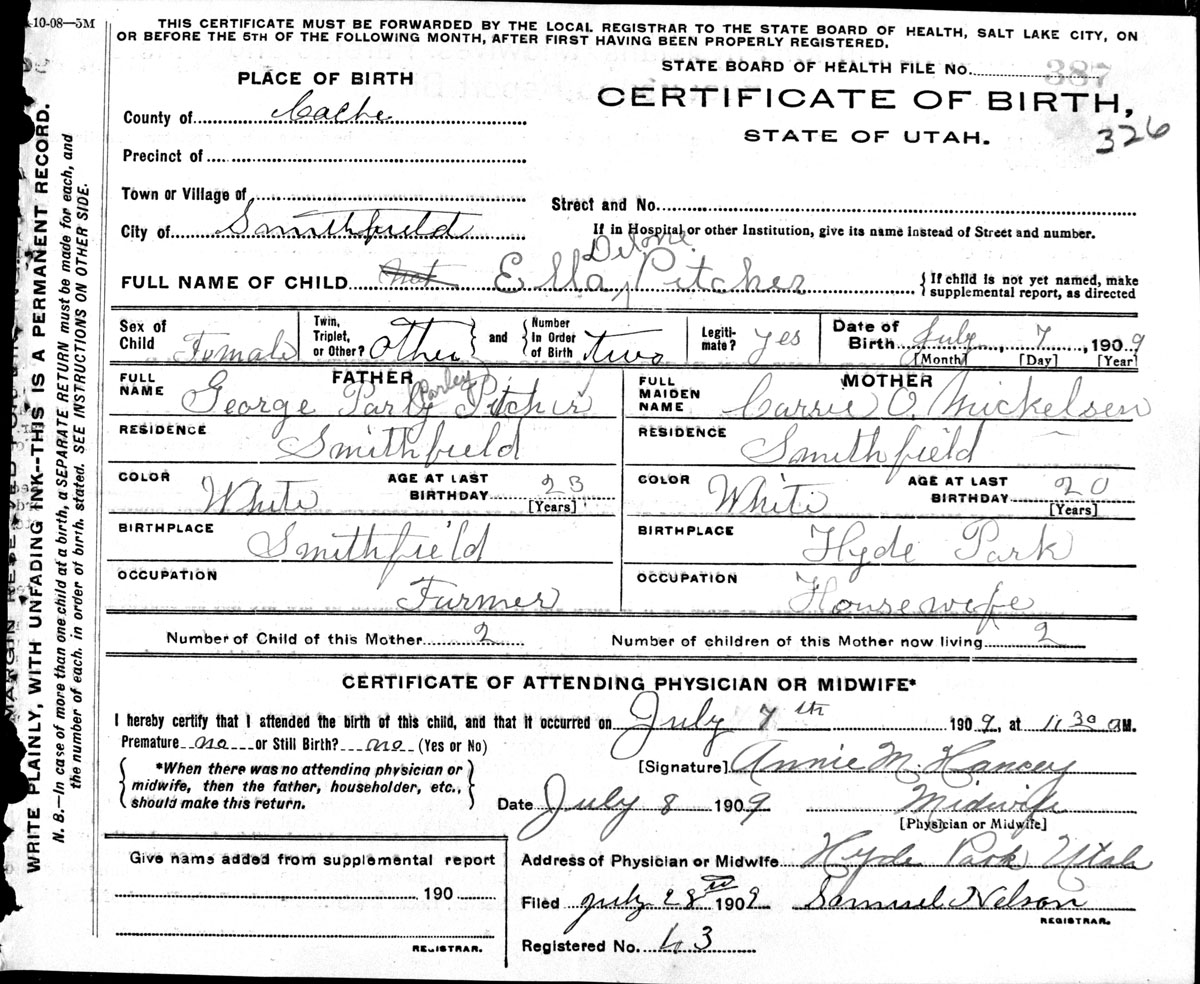 10-08—5M
THIS CERTIFICATE MUST BE FORWARDED BY THE LOCAL REGISTRAR TO THE STATE BOARD OF HEALTH, SALT LAKE CITY, ON
OR BEFORE THE 5TH OF THE FOLLOWING MONTH, AFTER FIRST HAVING BEEN PROPERLY REGISTERED.
WRITE PLAINLY, WITH UNFADING INK--THIS IS A PERMANENT RECORD.
N. B.—In case of more than one child at a birth, a SEPARATE RETURN must be made for each, and
the number of each, in order of birth, stated. SEE INSTRUCTIONS ON OTHER SIDE.
STATE BOARD OF HEALTH FILE No. 387
CERTIFICATE OF BIRTH,
STATE OF UTAH.
326
PLACE OF BIRTH
County of Cache
Precinct of
Town or Village of
Street and No.
City of Smithfield
If in Hospital or other Institution, give its name instead of Street and number.
FULL NAME OF CHILD Ella Pitcher
{ If child is not yet named, make
supplemental report, as directed
Sex of Child Female
Twin, Triplet, or Other? Other and Number In Order of Birth two
Legitimate? yes
Date of Birth July 7, 1909
[Month] [Day] [Year]
FATHER
FULL NAME George Parly Pitcher
Parley
RESIDENCE Smithfield
COLOR White AGE AT LAST BIRTHDAY 23 [Years]
BIRTHPLACE Smithfield
OCCUPATION Farmer
MOTHER
FULL MAIDEN NAME Carrie O. Mickelsen
RESIDENCE Smithfield
COLOR White AGE AT LAST BIRTHDAY 20 [Years]
BIRTHPLACE Hyde Park
OCCUPATION Housewife
Number of Child of this Mother 2 Number of children of this Mother now living 2
CERTIFICATE OF ATTENDING PHYSICIAN OR MIDWIFE*
I hereby certify that I attended the birth of this child, and that it occurred on July 7th 1909, at 1130 a M.
Premature no or Still Birth? no (Yes or No)
{ *When there was no attending physician or
midwife, then the father, householder, etc.,
should make this return. }
[Signature] Annie M. Hancey
Date July 8 1909 Midwife
[Physician or Midwife]
Give name added from supplemental report
190
REGISTRAR.
Address of Physician or Midwife Hyde Park Utah
Filed July 28th 1909 Samuel Nelson
REGISTRAR.
Registered No. 43